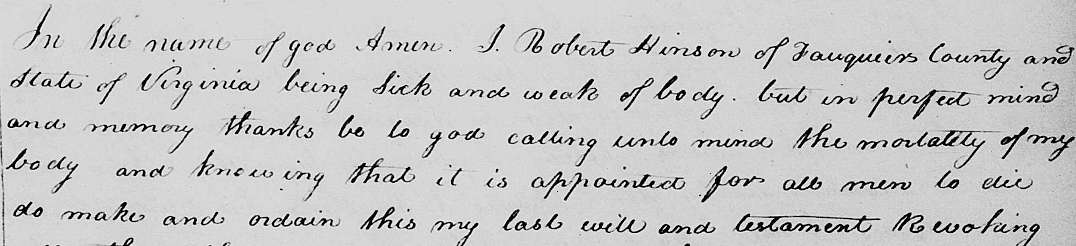 In the name of god Amen. I. Robert Hinson of Fauquiers County and
State of Virginia being Sick and weak of body. but in perfect mind
and memory thanks be to god calling unto mind the mortatety of my
body and knowing that it is appointed for all men to die
do make and ordain this my last will and testament Revoking